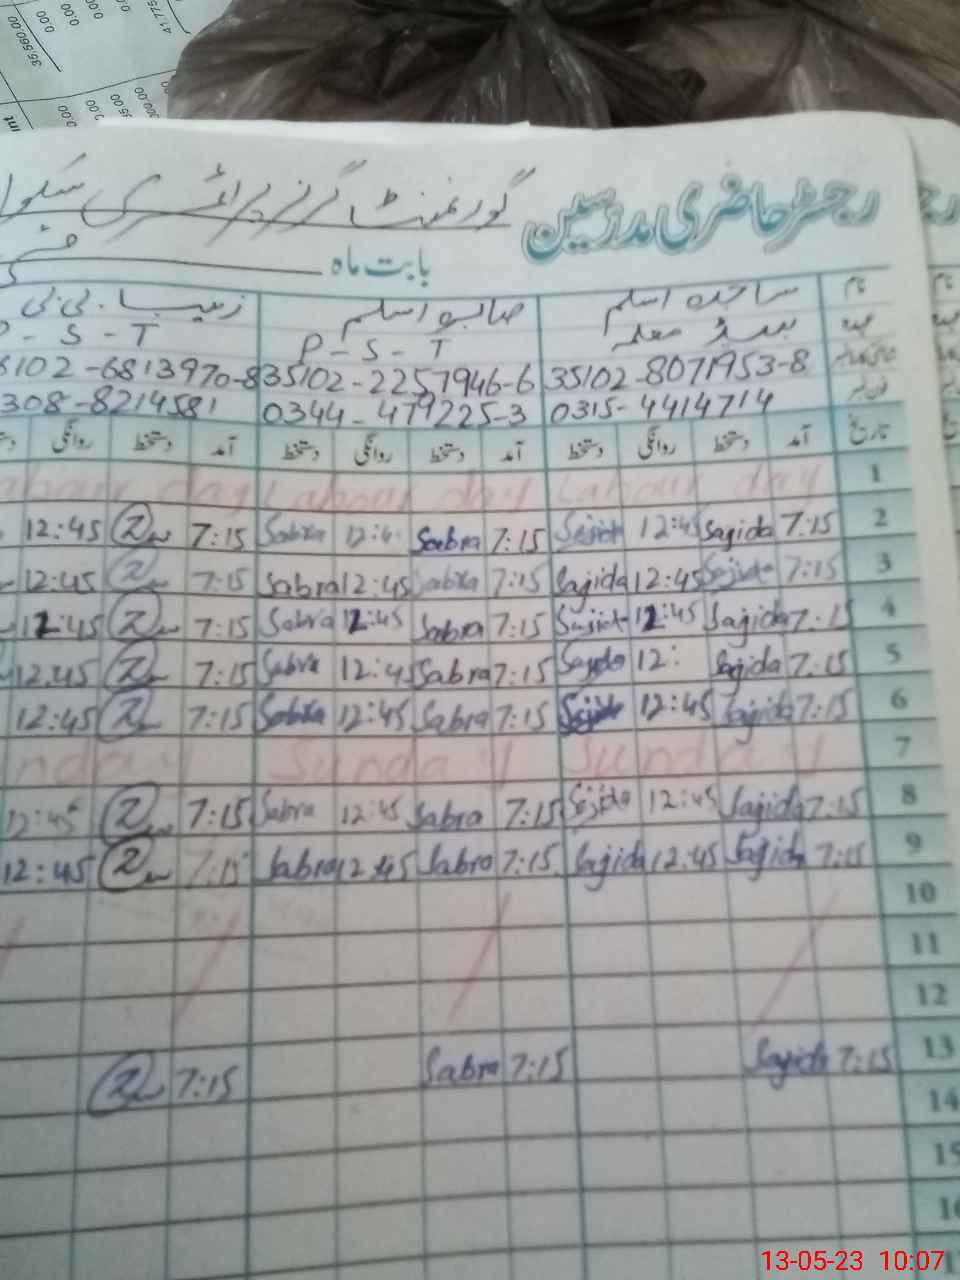 35,560.00
0.00
0.00
41,775
0.00
رجسٹر حاضری مدرسین گورنمنٹ گرلز پرائمری سکول
بابت ماہ
نام ساجدہ اسلم صابرہ اسلم زیب بی بی
عہدہ ہیڈ معلمہ P-S-T P-S-T
35102-8071953-8 35102-2257946-6 6102-6813970-8
0315-4414714 0344-479225-3 308-8214581
تاریخ آمد دستخط روانگی دستخط آمد دستخط روانگی دستخط آمد دستخط روانگی
1 Labour day Labour day abour day
2 7:15 Sajida 12:45 Sajida 7:15 Sabra 12:4 Sabra 7:15 12:45
3 7:15 Sajida 12:45 Sajida 7:15 Sabra 12:45 Sabra 7:15 12:45
4 7:15 Sajida 12:45 Sajida 7:15 Sabra 12:45 Sabra 7:15 12:45
5 7:15 Sajida 12: Sajida 7:15 Sabra 12:45 Sabra 7:15 12.45
6 7:15 Sajida 12:45 Sajida 7:15 Sabra 12:45 Sabra 7:15 12:45
7 Sunday Sunday nday
8 7:15 Sajida 12:45 Sajida 7:15 Sabra 12:45 Sabra 7:15 12:45
9 7:15 Sajida 12:45 Sajida 7:15 Sabra 12:45 Sabra 7:15 12:45
10
11
12
13 7:15 Sajida 7:15 Sabra 7:15
14
15
13-05-23 10:07